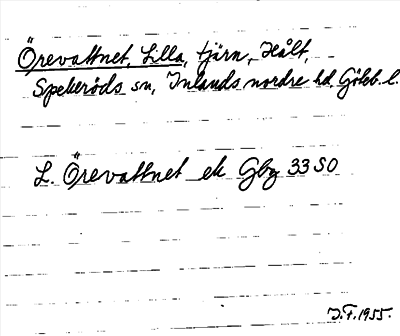 Örevattnet, Lilla, tjärn, Hålt,
Spekeröds sn, Inlands nordre hd, Göteb. l.
L. Örevattnet ek Gbg 33 SO
J.F. 1955.